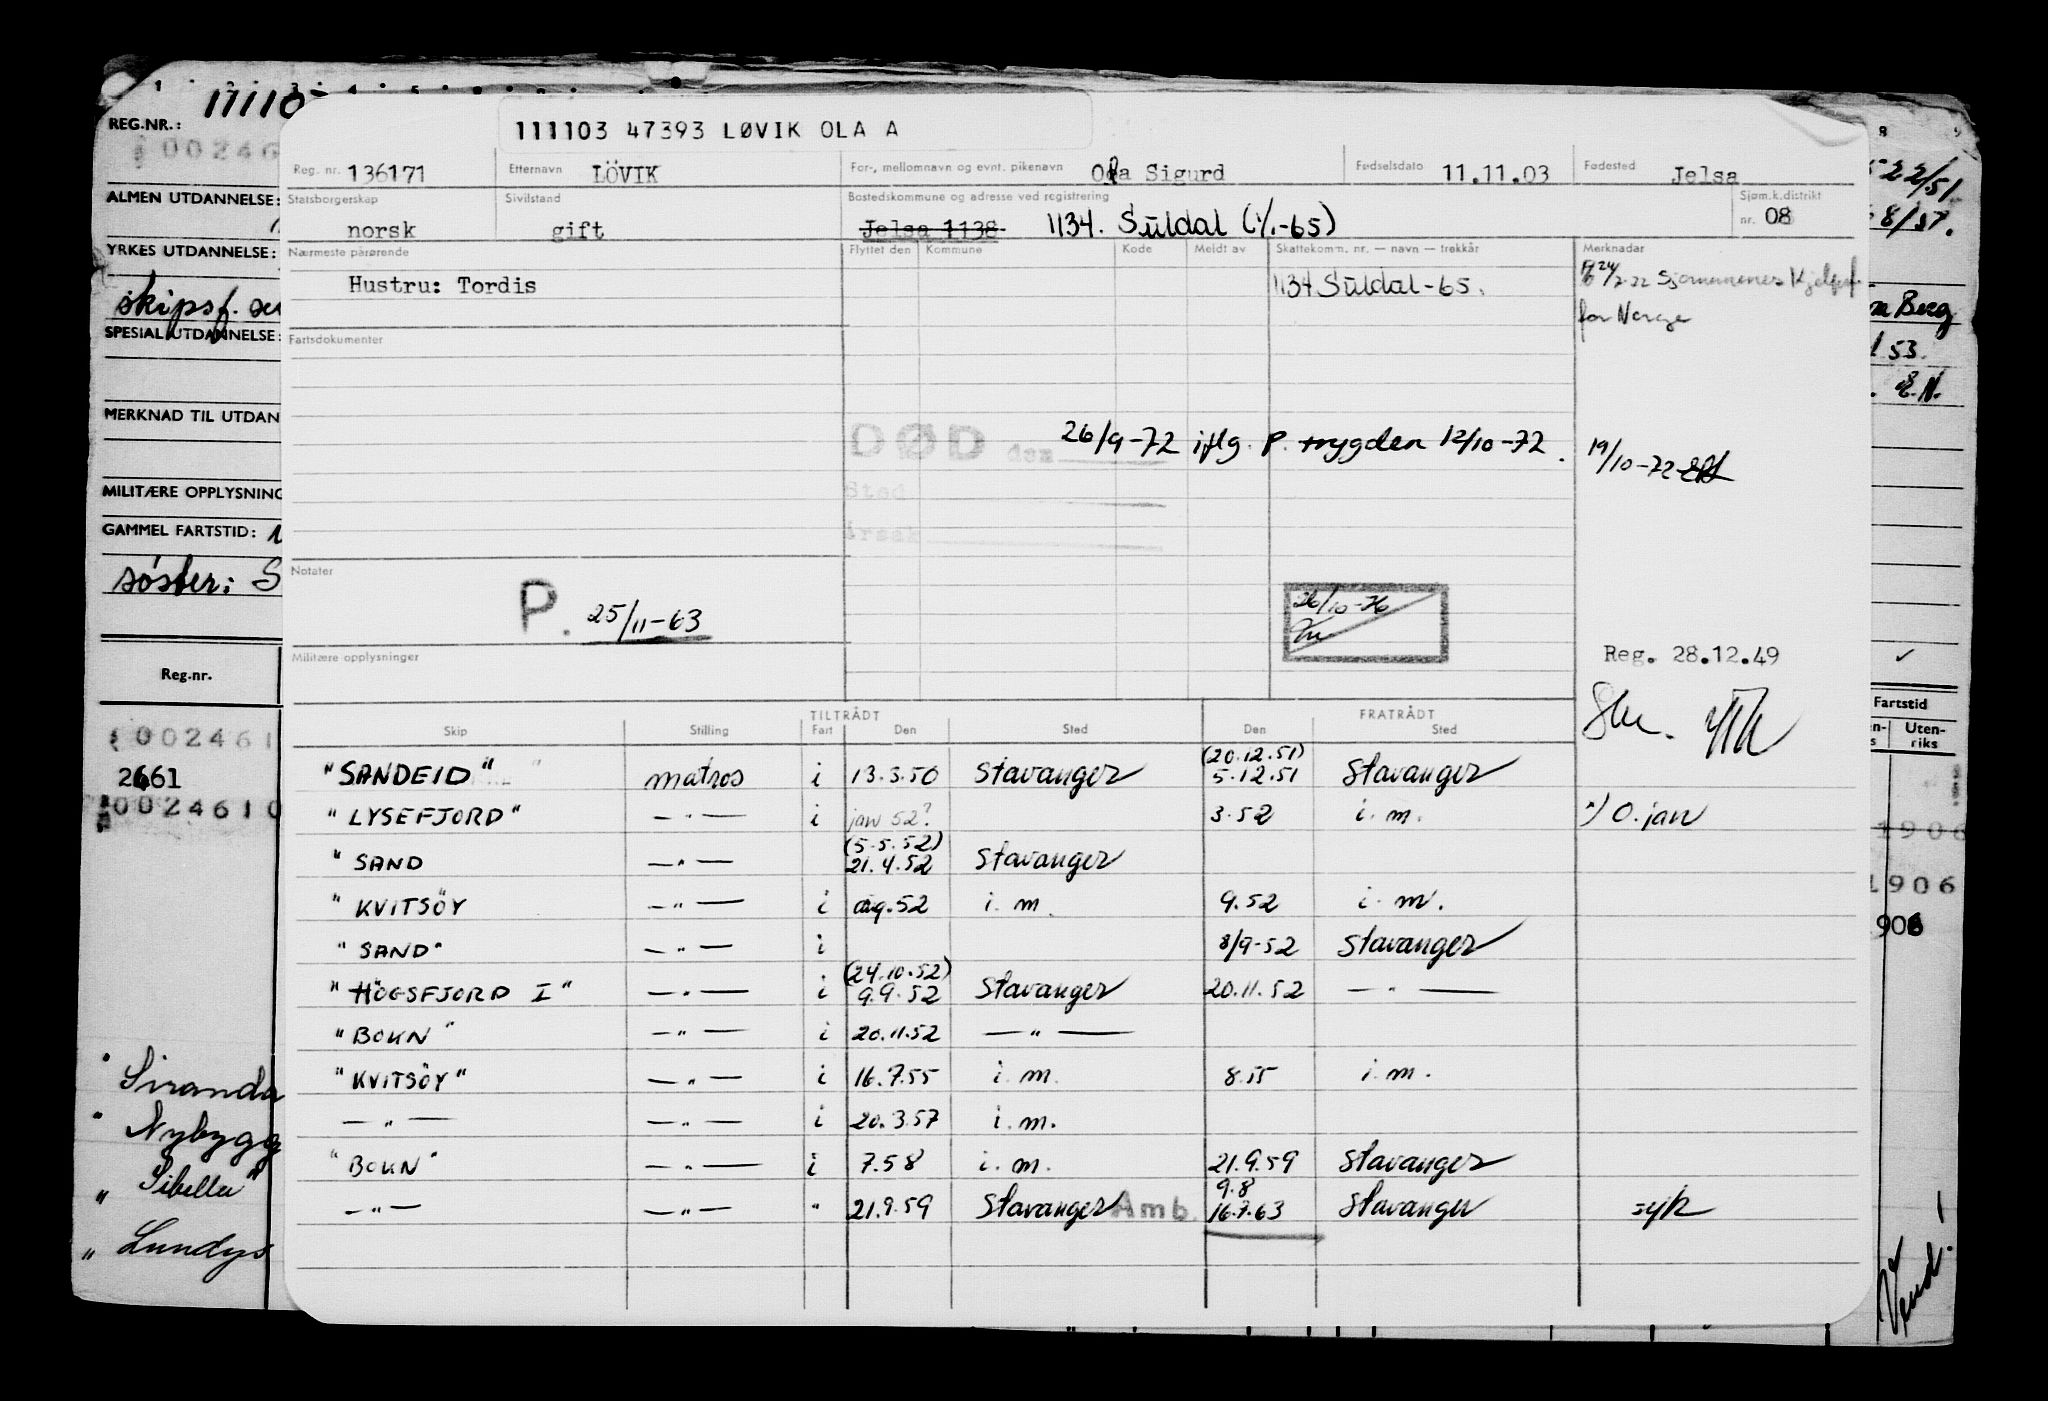 11110
REG.NR.:
00246
ALMEN UTDANNELSE:
YRKES UTDANNELSE:
skipsf.
SPESIAL UTDANNELSE:
MERKNAD TIL UTDAN
MILITÆRE OPPLYSNING
GAMMEL FARTSTID:
söster: S
Reg.nr.
002461
2461
0024610
Siranda
Nybygg
"Sibella"
" Lundys
111103 47393 LØVIK OLA A
Reg. nr. 136171 Etternavn LÖVIK For-, mellomnavn og evnt. pikenavn Ola Sigurd Fødselsdato 11.11.03 Fødested Jelsa
Statsborgerskap norsk Sivilstand gift Bostedskommune og adresse ved registrering Jelsa 1138 1134. Suldal (1/1-65) Sjøm.k.distrikt nr. 08
Nærmeste pårørende Flyttet den Kommune Kode Meldt av Skattekomm. nr. — navn — trekkår Merknadar
Hustru: Tordis 1134 Suldal-65. Sjømennenes Hjelpef.
for Norge
Fartsdokumenter
DØD den 26/9-72 iflg. P. trygden 12/10-72. 19/10-72
Sted
Årsak
Notater
P. 25/11-63
26/10-76
Militære opplysninger
Reg. 28.12.49
Skip Stilling TILTRÅDT Fart Den Sted FRATRÅDT Den Sted
"SANDEID" matros i 13.3.50 Stavanger (20.12.51) 5.12.51 Stavanger
"LYSEFJORD" — " — i jan 52? 3.52 i. m. ") O. jan
"SAND — " — (5.5.52) 21.4.52 Stavanger
"KVITSÖY — " — i aug.52 i. m. 9.52 i. m.
"SAND" — " — i 8/9-52 Stavanger
"HÖGSFJORD I" — " — i (24.10.52) 9.9.52 Stavanger 20.11.52 — " —
"BOKN" — " — i 20.11.52 — " —
"KVITSÖY" — " — i 16.7.55 i. m. 8.55 i. m.
— " — — " — i 20.3.57 i. m.
"BOKN" — " — i 7.58 i. m. 21.9.59 Stavanger
— " — — " — " 21.9.59 Stavanger Amb. 9.8 16.7.63 Stavanger
8 9
522/51
8/37.
Berg
53.
E.N.
Fartstid
Uten-
riks
1906
1906
906
Vend.